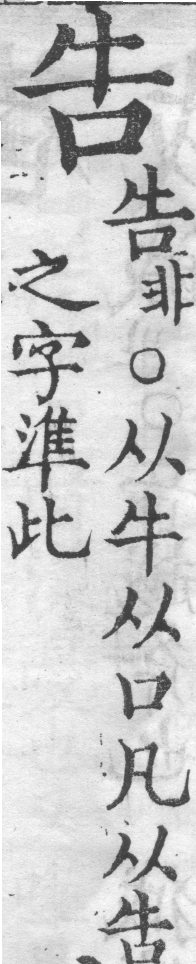 告
告非○从牛从口凡从告
之字準此